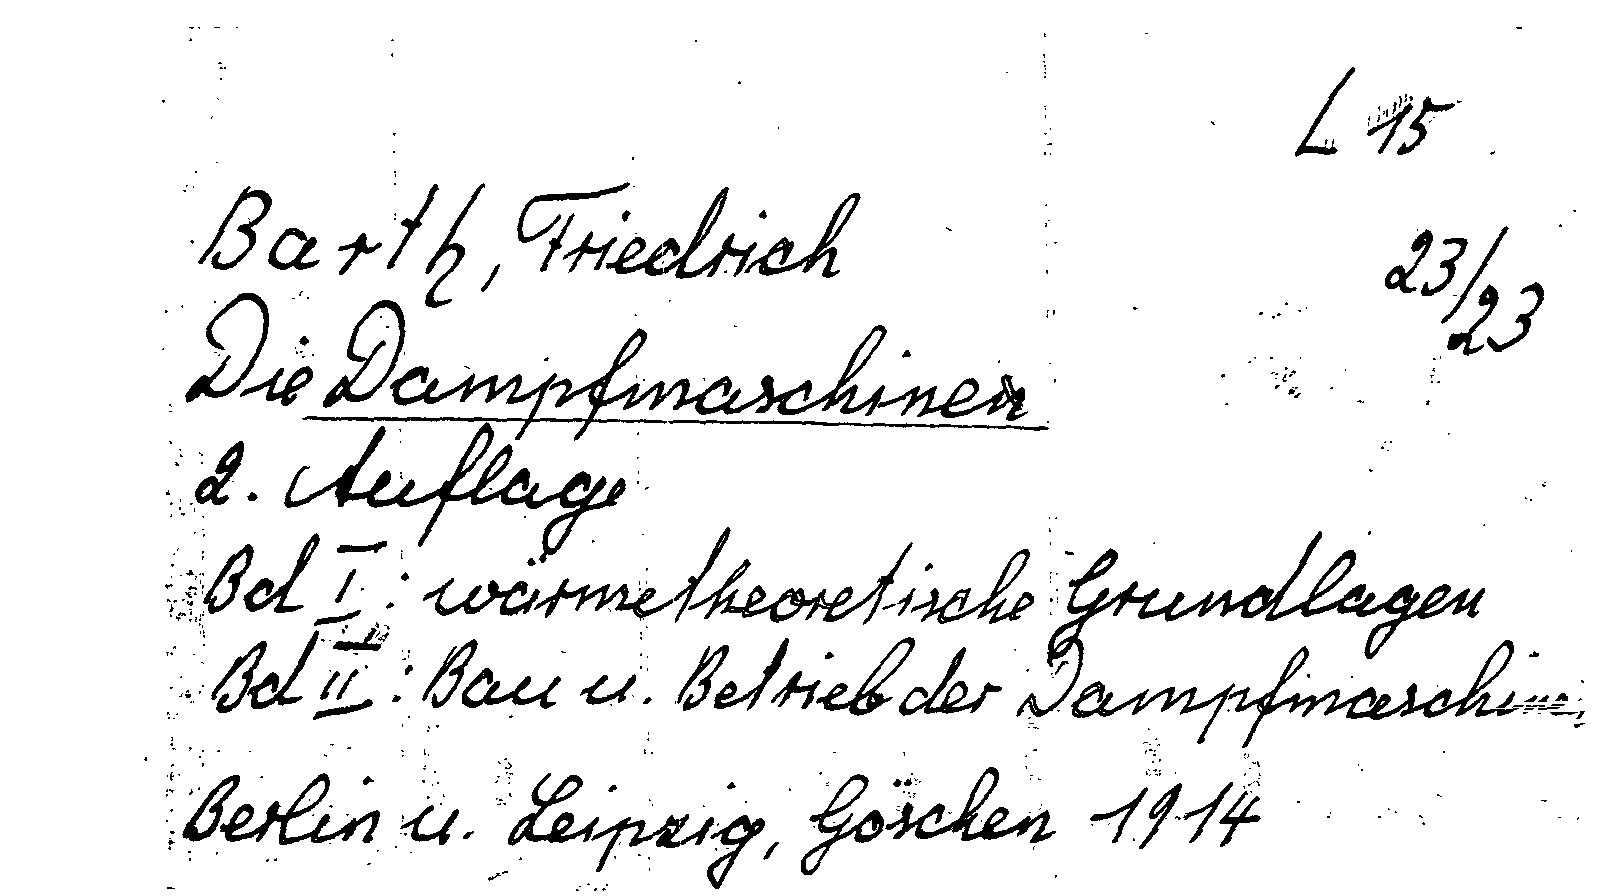 L 15
Barth, Friedrich
23/23
Die Dampfmaschinen
2. Auflage
Bd I: wärmetheoretische Grundlagen
Bd II: Bau u. Betrieb der Dampfmaschine
Berlin u. Leipzig, Göschen 1914